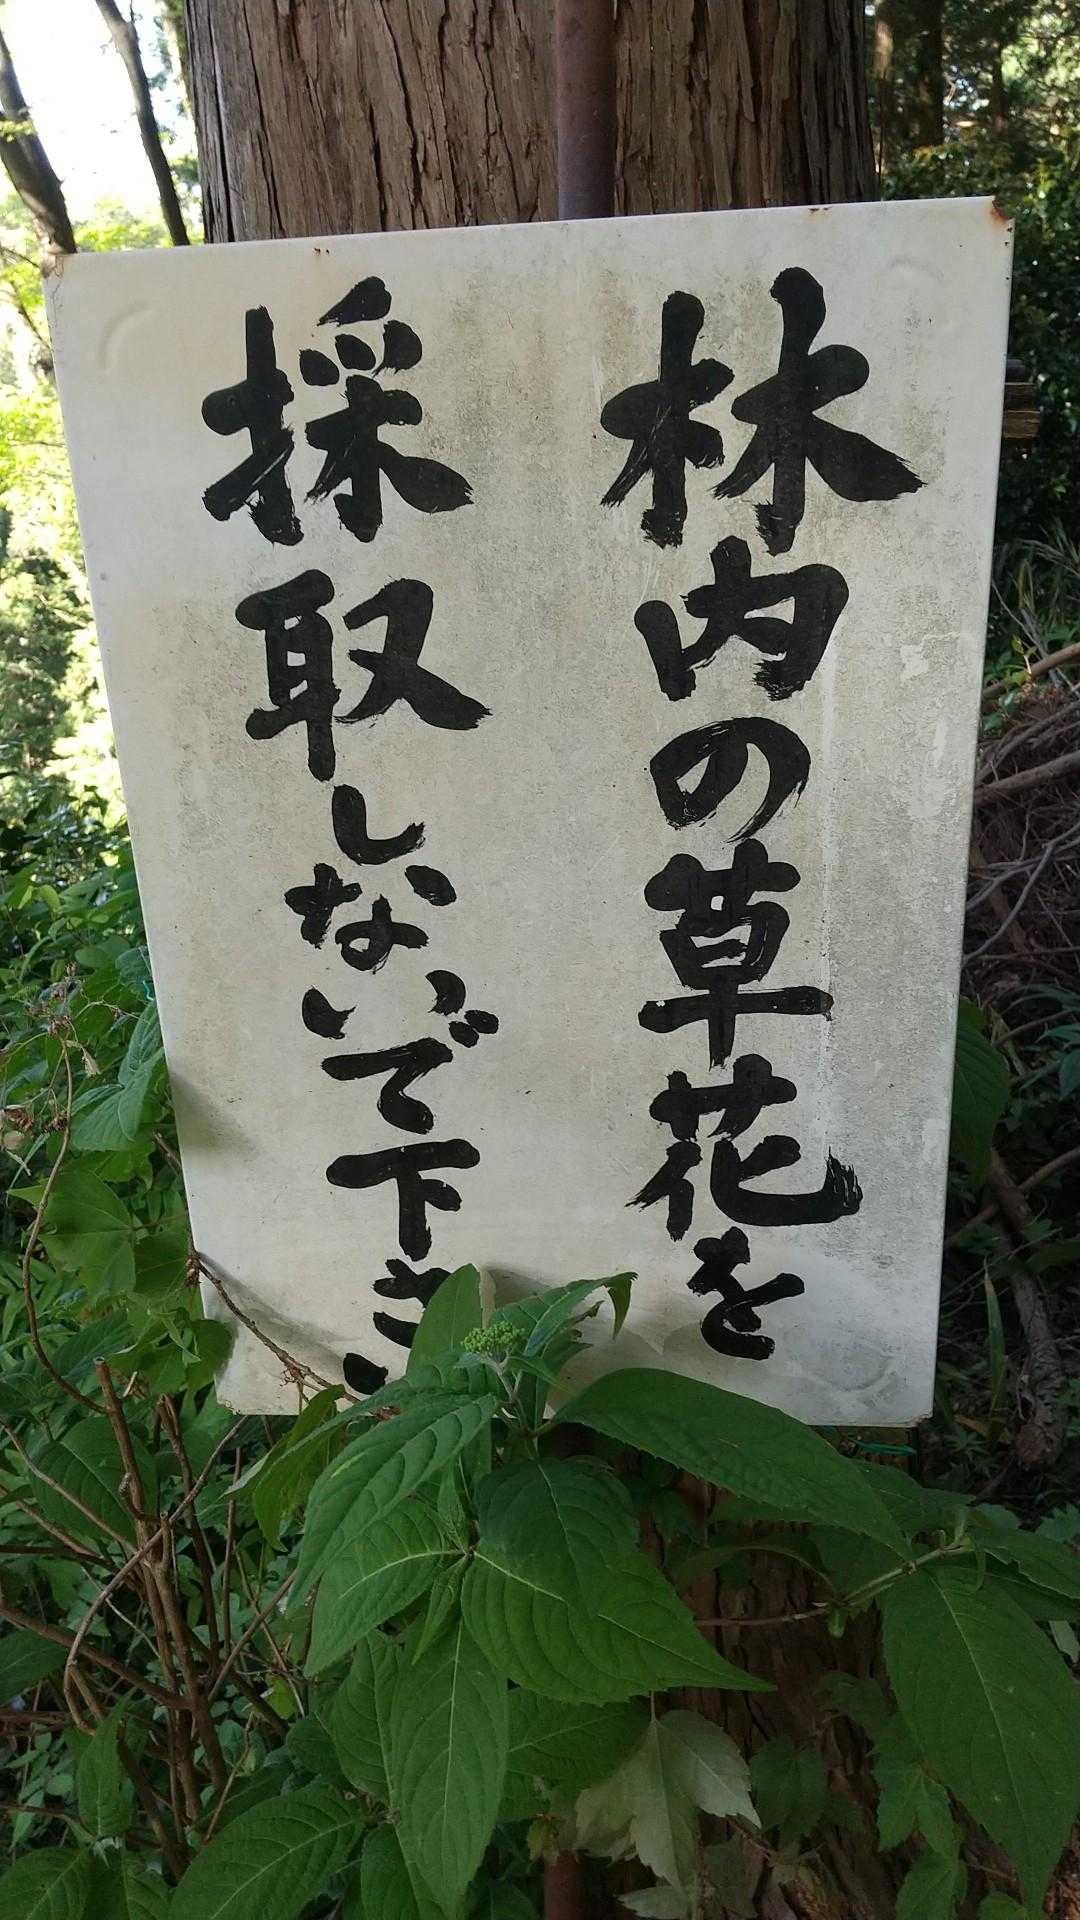 林内の草花を
採取しないで下さい